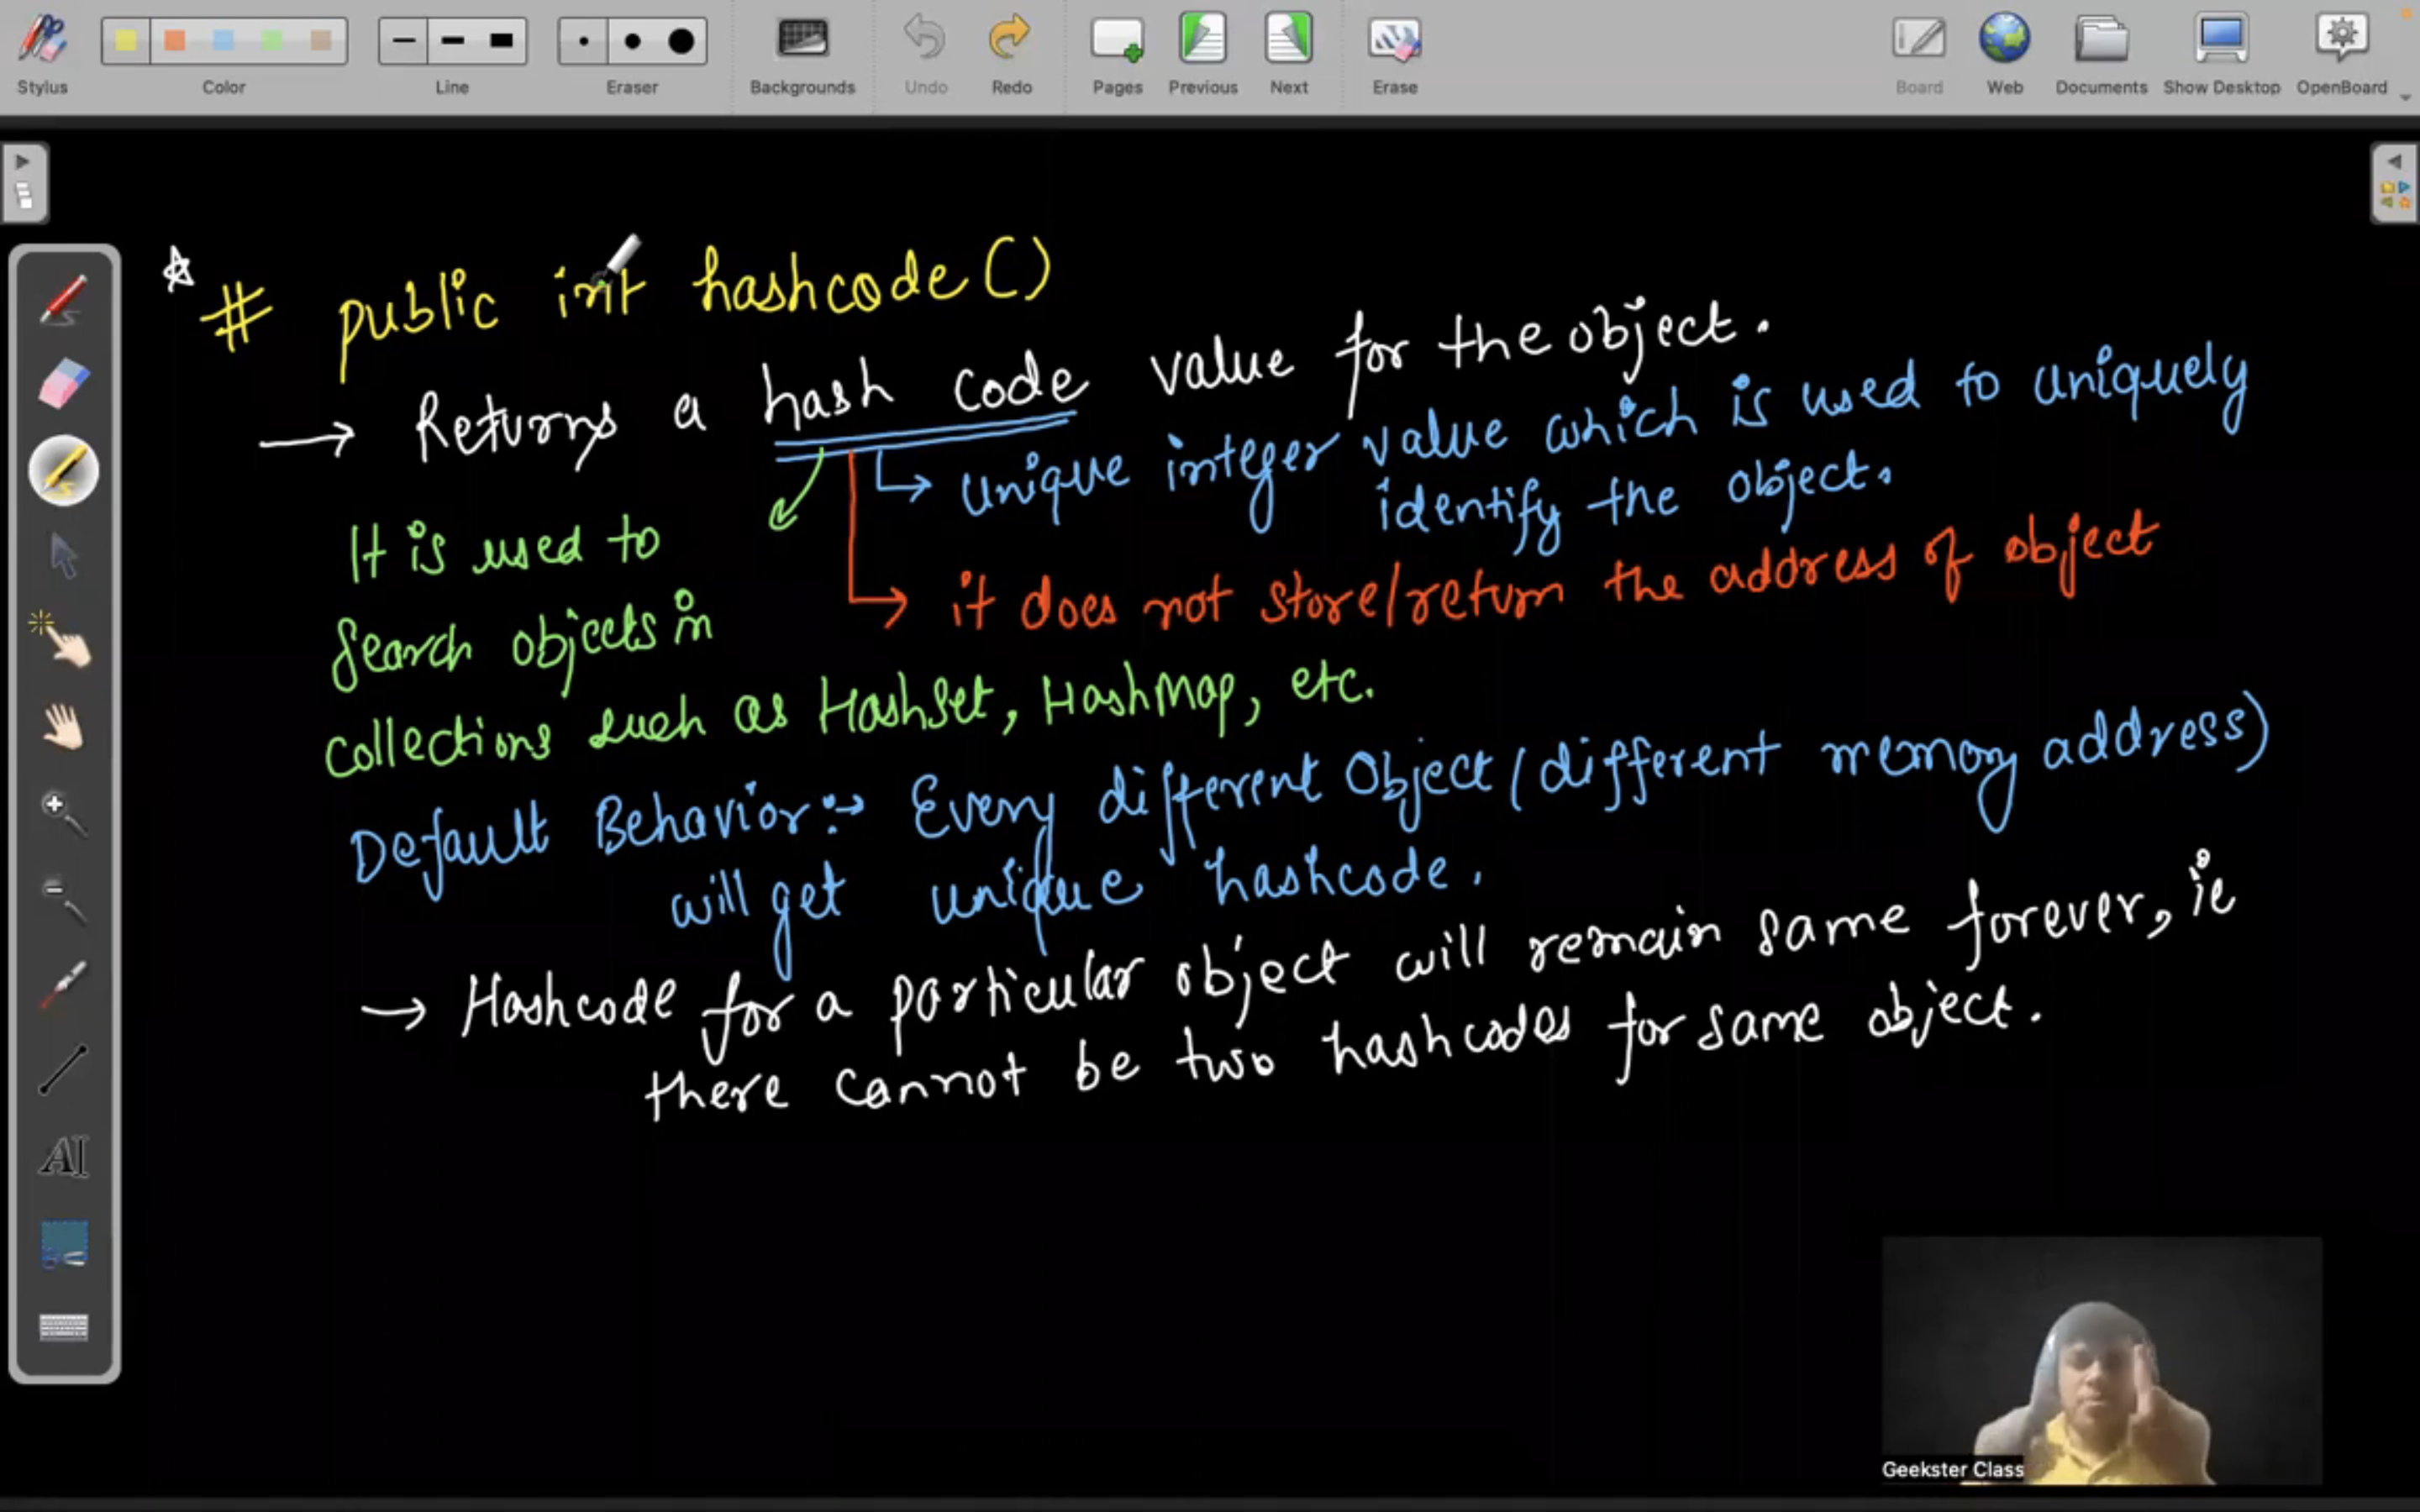 Stylus Color Line Eraser Backgrounds Undo Redo Pages Previous Next Erase Board Web Documents Show Desktop OpenBoard
# public int hashcode()
→ Returns a hash code value for the object.
↳ unique integer value which is used to uniquely
identify the object.
↳ it does not store/return the address of object
It is used to
search objects in
collections such as HashSet, HashMap, etc.
Default Behavior:→ Every different Object (different memory address)
will get unique hashcode.
→ Hashcode for a particular object will remain same forever, ie
there cannot be two hashcodes for same object.
AI
Geekster Class